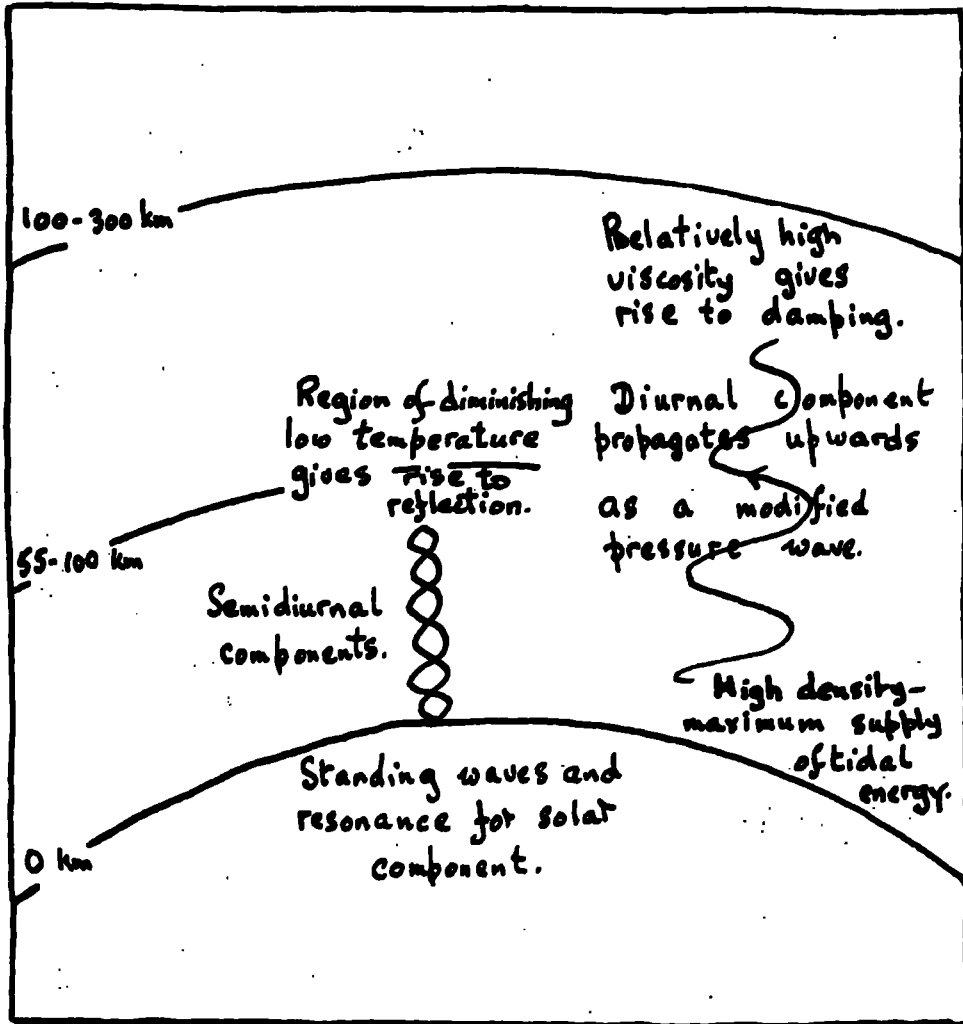 100-300 km
Relatively high
viscosity gives
rise to damping.
Region of diminishing
low temperature
gives rise to
reflection.
Diurnal component
propagates upwards
as a modified
pressure wave.
55-100 km
Semidiurnal
components.
High density-
maximum supply
of tidal
energy.
Standing waves and
resonance for solar
component.
0 km